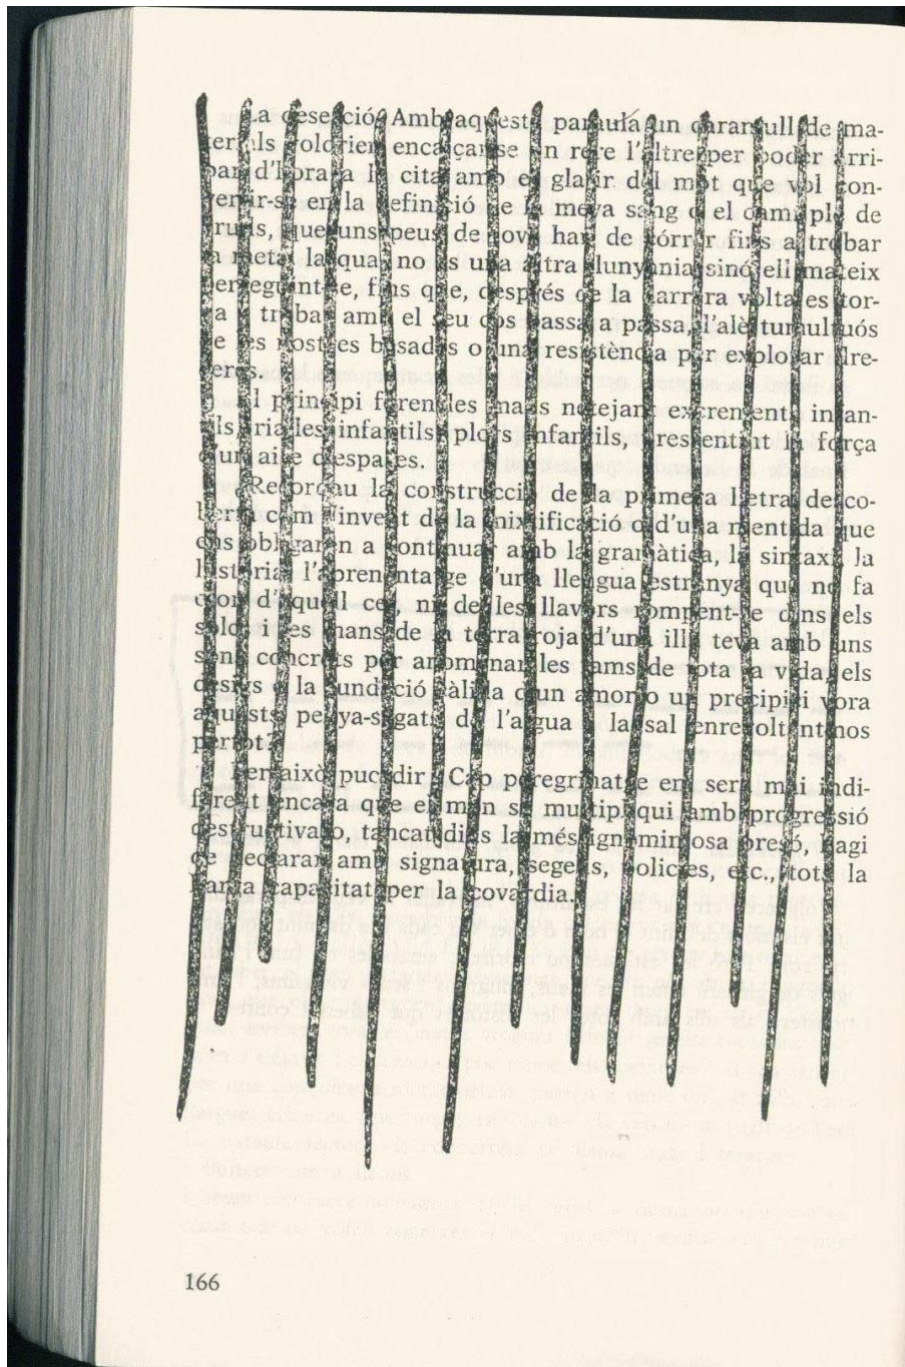 La deserció. Amb aquesta paraula un caramull de ma-
terials voldrien encalçar-se un rere l'altre per poder arri-
bar d'hora a la cita amb el glatir del mot que vol con-
vertir-se en la definició de la meva sang o el camí ple de
que uns peus de jove han de córrer fins a trobar
la meta, la qual no és una altra llunyania sinó ell mateix
perseguint-se, fins que, després de la darrera volta es tor-
na a trobar amb el seu cos passa a passa, l'alè tumultuós
de les nostres besades o una resistència per explorar dre-
ceres.
Al principi foren les mans netejant excrements infan-
tils, rialles infantils, plors infantils, i ressentint la força
d'un aire d'espases.
Recordau la construcció de la primera lletra desco-
berta com l'invent de la mixtificació o d'una mentida que
ens obligaren a continuar amb la gramàtica, la sintaxi, la
història i l'aprenentatge d'una llengua estranya que no fa
olor d'aquell cel, ni de les llavors rompent-se dins els
solcs i les mans de la terra roja d'una illa teva amb uns
sons concrets per anomenar les rams de tota la vida, els
desigs o la fundació càlida d'un amor o un precipici vora
aquests penya-segats de l'aigua i la sal enrevoltant-nos
pertot?
Per això puc dir: Cap peregrinatge em serà mai indi-
ferent encara que el món se multipliqui amb progressió
destructiva o, tancat dins la més ignominiosa presó, hagi
de declarar amb signatura, segells, policies, etc., tota la
capacitat per la covardia.
166